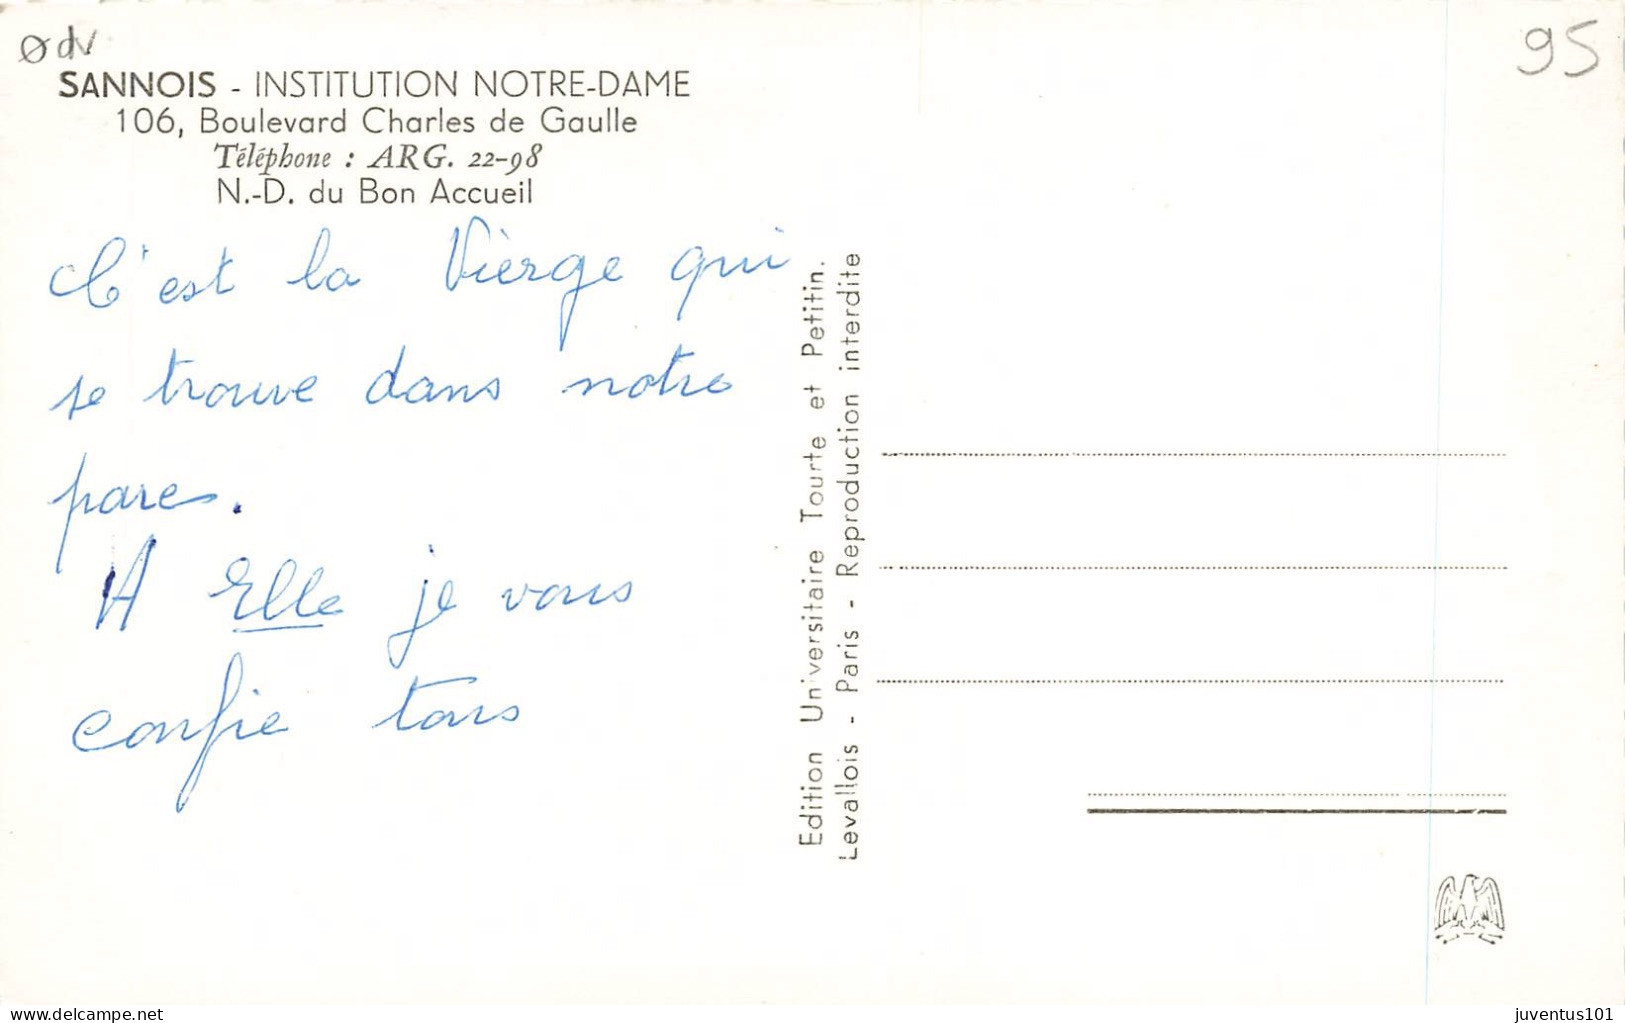 Ødv
95
SANNOIS - INSTITUTION NOTRE-DAME
106, Boulevard Charles de Gaulle
Téléphone : ARG. 22-98
N.-D. du Bon Accueil
C'est la Vierge qui
se trouve dans notre
parc.
A Elle je vous
confie tous
Edition Universitaire Tourte et Petitin.
Levallois - Paris - Reproduction interdite
delcampe.net
juventus101